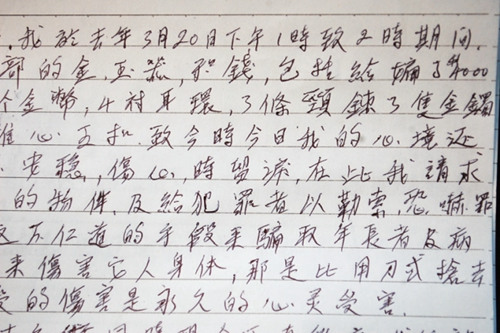 .我於去年3月20日下午1時致2時期間.
部的金,玉器,积錢,包括給媽了$4000
个金幣,4対耳環,3條頸鍊3隻金鐲
心玉扣.致今時今日我的心境还
安穏,傷心,時留淚,在此我請求
的物件,及給犯罪者以勒索,恐嚇罪
不仁道的手段来騙取年長者及病
来傷害它人身体,那是比用刀或搶去
受的傷害是永久的心灵受害.